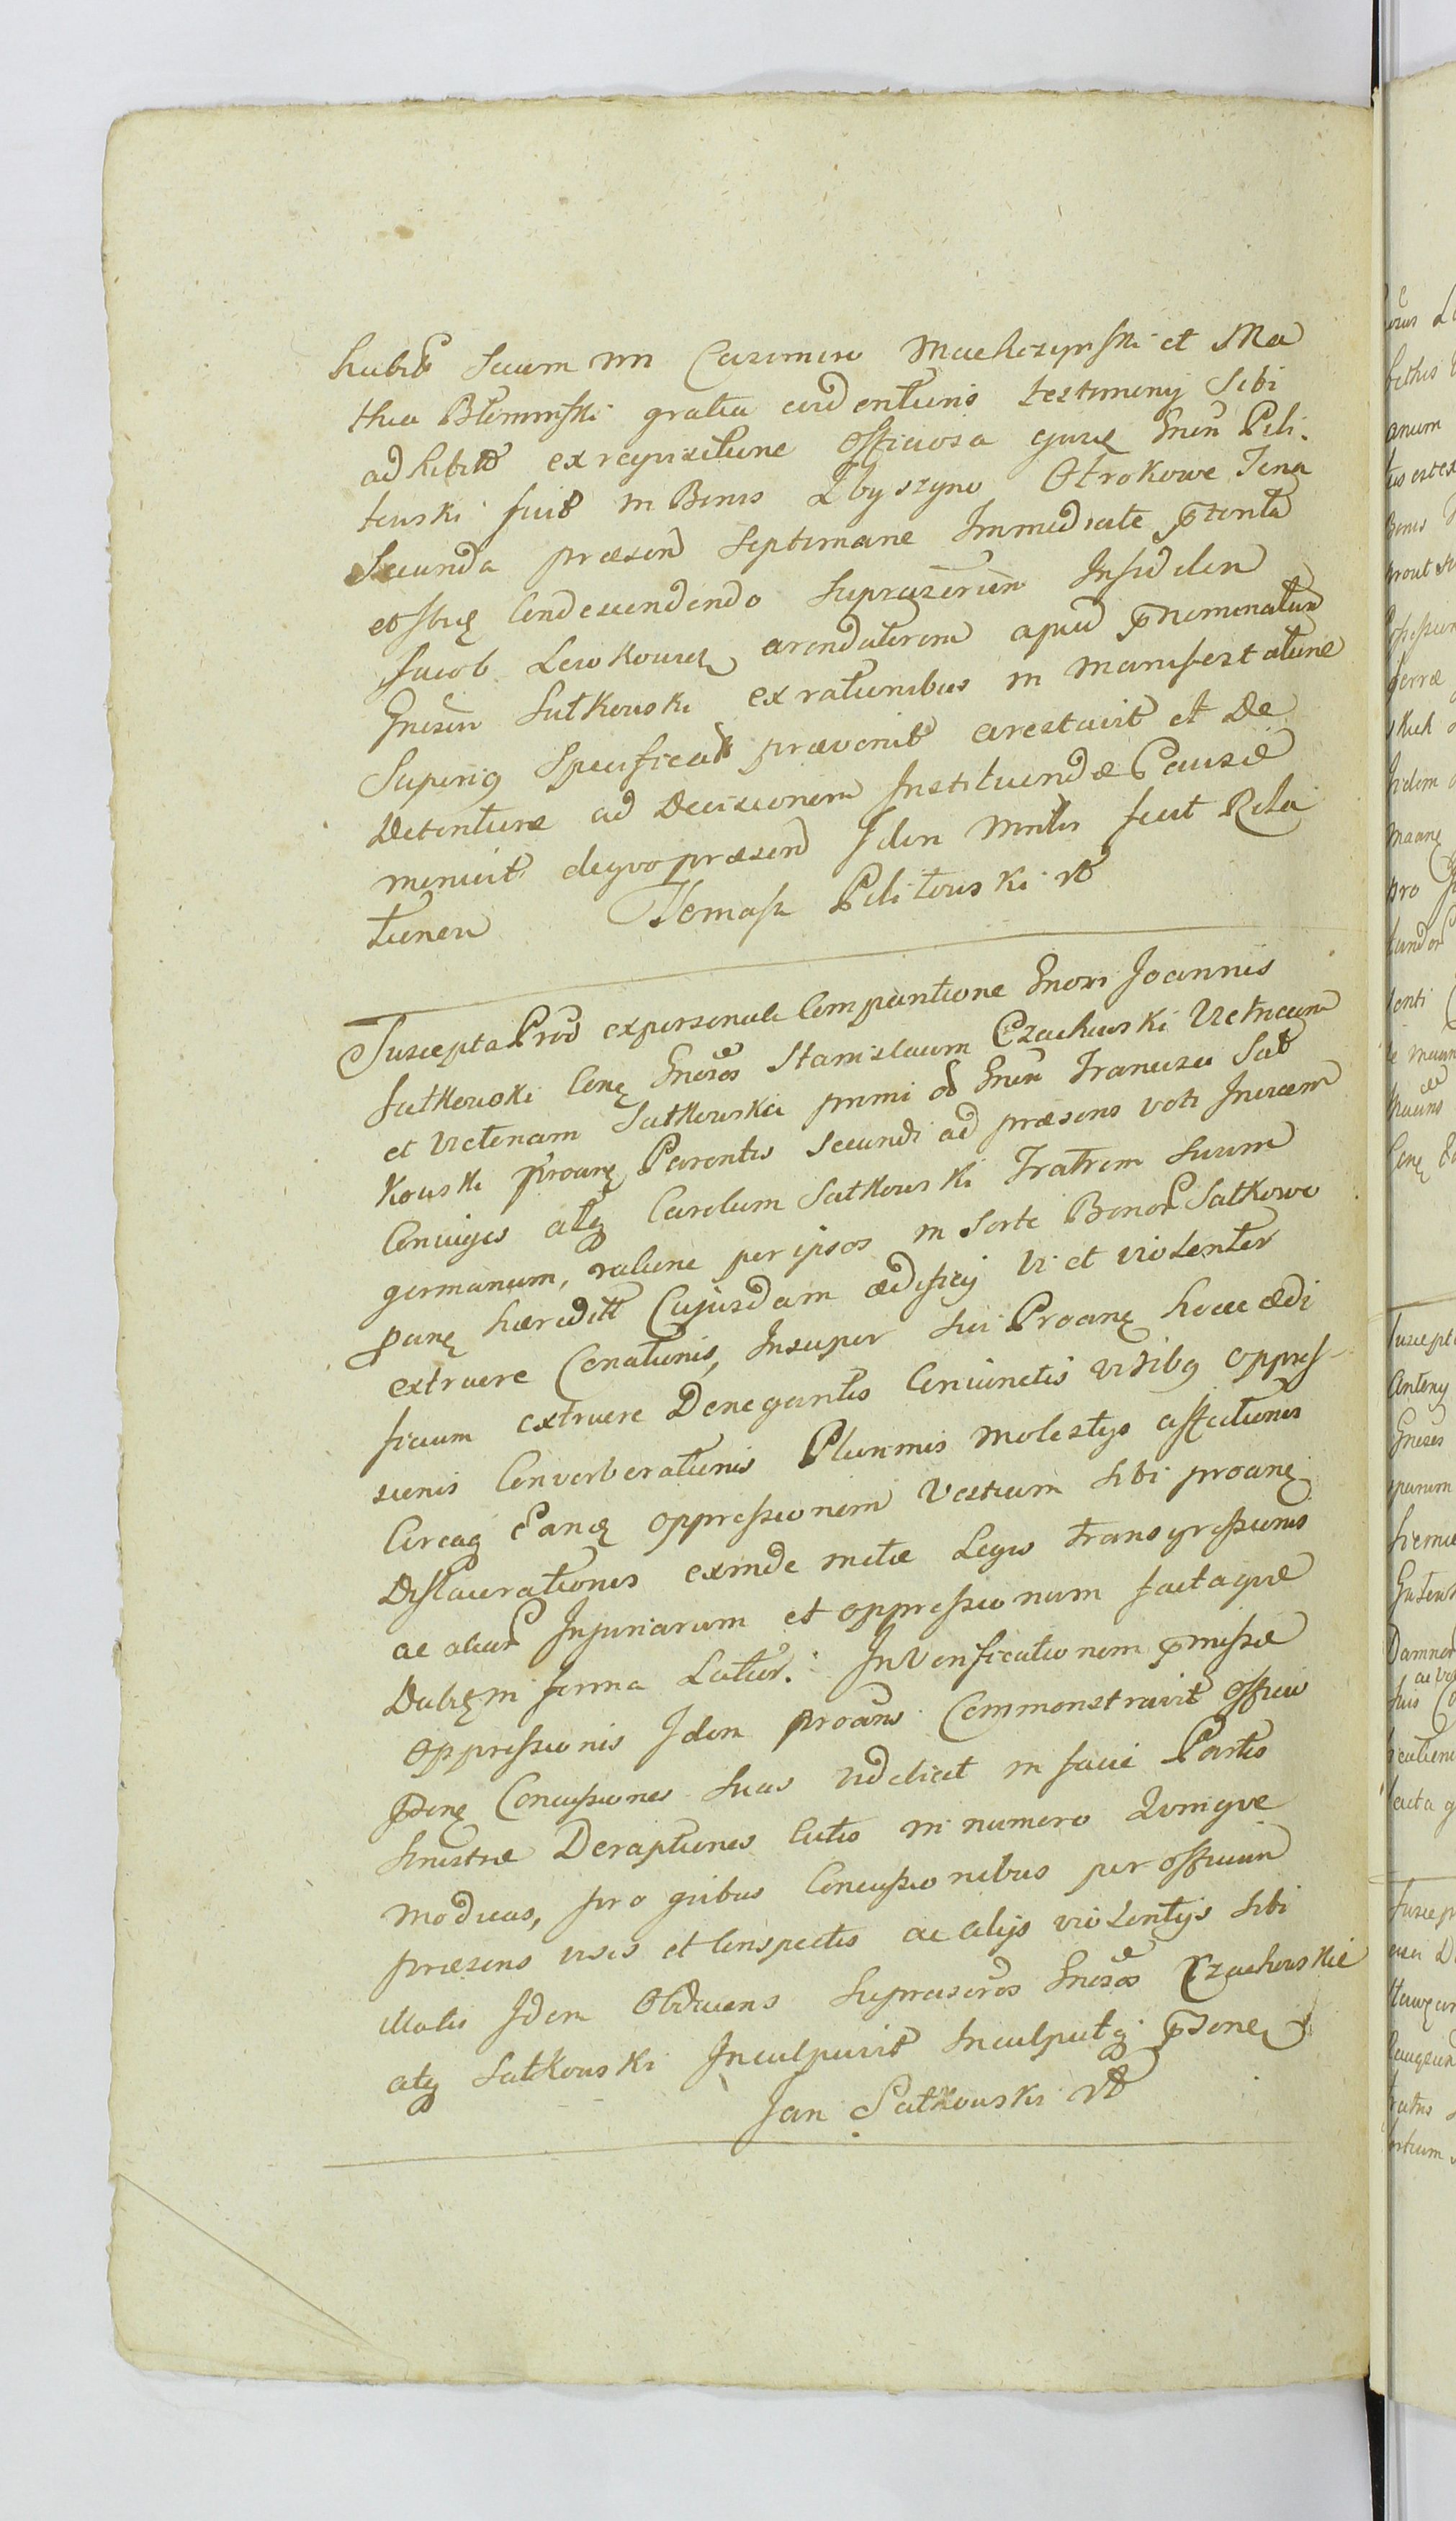 habitis Secum nn Casimiro Machczynski et Ma
thia Blominski gratia evidentioris testimonij Sibi
adhibitis ex requisitione officiosa gnrs Gnsi Pili
towski fuit in Bonis Zbyszyno Otrokowe Feria
Secunda præsend Septimanæ Immediate pterita
et Ibiq Condescendendo Suprascrium Infidelem
Jacob Lewkowicz arendatorem apud pnominatum
Gnsum Sutkowski ex rationibus in manifestatione
Superiq Specificatis prævenit arestavit et De
Detentione ad Decisionem Instituendæ Causæ
monuit de quo præsend Idem Mnlis fecit Rela
tionem Tomasz Pilitowski
Suscepta Prod ex personali Comparitione Gnosi Joannis
Sutkowski Conq Gnosos Stanislaum Czachowski Victricum
et Victoriam Sutkowska primi ob Gnsi Francisci Sut
kowski Proanq Parentis Secundi ad præsens voti Invicem
Coniuges atq Carolum Sutkowski Fratrem Suum
germanum, ratione per ipsos in Sorte Bonor Sutkowo
pnq hæredittt Cujusdam ædificij vi et violenter
extruere Conationis, Insuper Sui Proanq hocce ædi
ficium extruere Denegantis Coniunctis viribq oppres-
sionis Converberationis Plurimis molestijs affectionis
Circaq Eandq oppressionem Vestium Sibi proanq
Dislacerationis exinde metæ Legis transgressionis
ac aliar Injuriarum et oppressionum factaque
Dubq in forma Latior. In Verificationem pmissæ
oppressionis Idem Proans Commonstravit officio
pstnq Concussiones Suas Videlicet in facie Partis
Sinistræ Deraptiones Cutis in numero Quinque
modicas, pro quibus Concussionibus per officium
præsens visis et Conspectis ac alijs violentijs Sibi
illatis Idem Obducens Suprascros Gnosos Czachowskie
atq Sutkowski Inculpavit Inculpatq pstnq
Jan Sutkowski